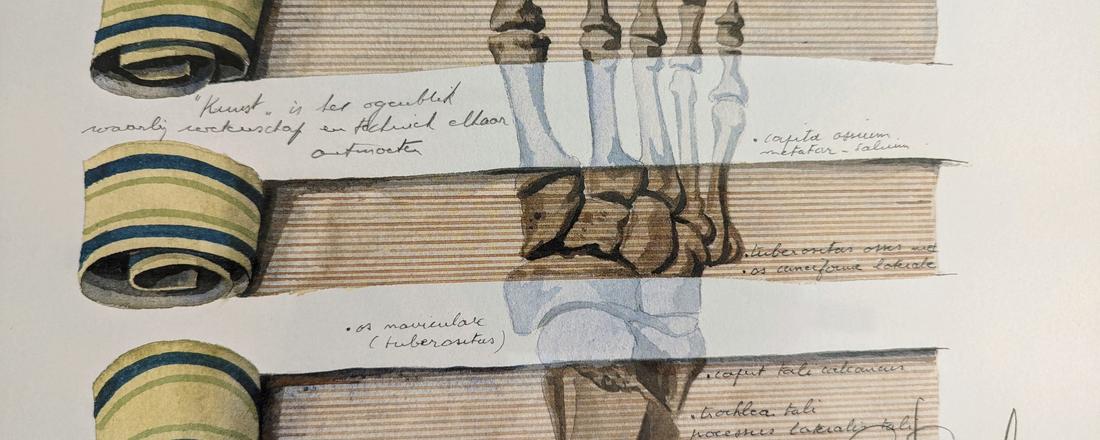 "Kunst" is het ogenblik
waarbij wetenschap en techniek elkaar
ontmoeten
• capita ossium
metatar-salium
• tuberositas ossis met
• os cuneiforme laterale
• os naviculare
(tuberositas)
• caput tali calcaneus
• trochlea tali
processus lateralis tali